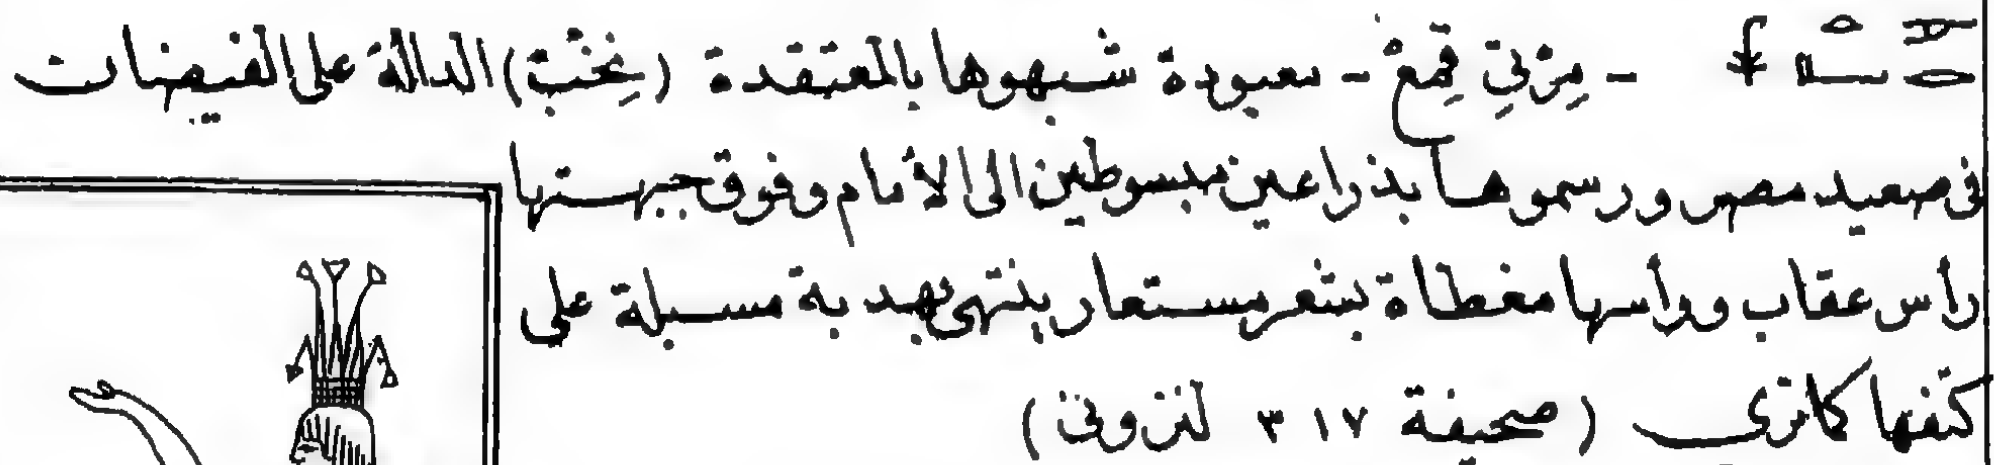 - مِرْتِي قِمَعْ - معبودة شبهوها بالمعتقدة (نِخَنْبْ) الدالة على الفيضات
فى صعيد مصر ورسموها بذراعين مبسوطين الى الأمام وفوق جبهتها
رأس عقاب ورأسها مغطاة بشعر مستعار ينتهى بهدبة مسبلة على
كتفها كاترى (صحيفة ٣١٧ لنزونى)